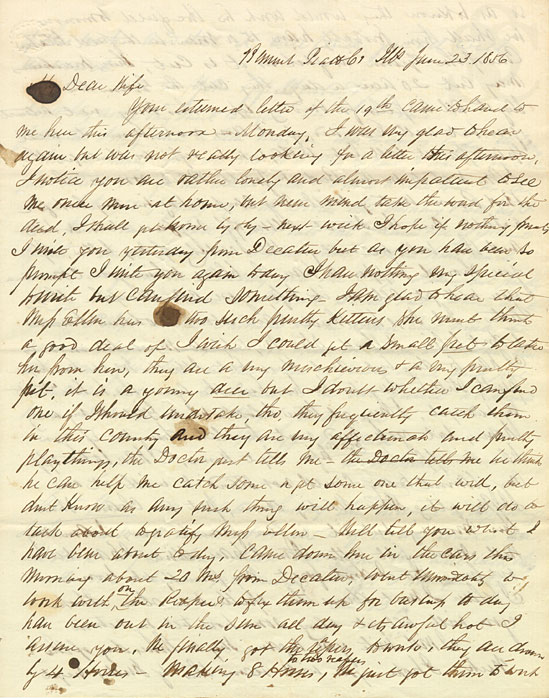 Bement Piatt Co Ills June 23 1856
Dear Wife
Your esteemed letter of the 19th came to hand to
me here this afternoon - Monday, I was very glad to hear
again but was not really looking for a letter this afternoon,
I notice you are rather lonely and almost impatient to see
me once more at home, but never mind take the road for the
dead, I shall get home by & by - next week I hope if nothing
I wrote you yesterday from Decatur but as you have been so
prompt I write you again today I have nothing very special
to write but can find something - I am glad to hear that
Miss Ellen has two such pretty kittens she must think
a good deal of I wish I could get a small pet to take
her from here, they are a very mischievous & a very pretty
pet. it is a young deer but I doubt whether I can find
one if I should undertake tho they frequently catch them
in this County and they are very affectionate and pretty
playthings, the Doctor just tells me - the Doctor tells me he thinks
he can help me catch some or get some one that will, but
dont know as any such thing will happen, it will do to
talk about to gratify Miss Ellen - Ill tell you what I
have been about today, Came down here in the cars this
Morning about 20 Ms from Decatur, Went immediately to
work with on the Reapers to fix them up for
have been out in the sun all day & its awful hot I
assure you, We finally got the reapers to work, they are drawn
by 4 Horses - making 8 Horses, to two reapers We just got them to work